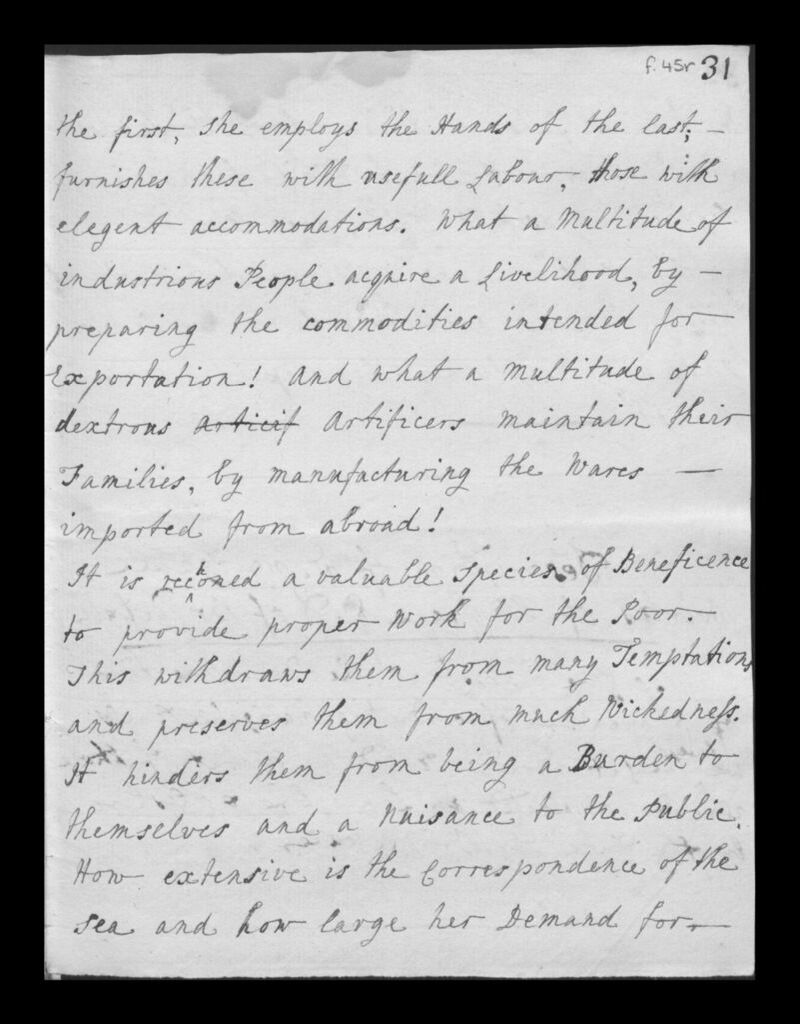 f. 45r 31
the first, she employs the Hands of the last; –
furnishes these with usefull Labour, those with
elegent accommodations. What a Multitude of
industrious People acquire a Livelihood, by –
preparing the commodities intended for
Exportation! And what a multitude of
dextrous articif Artificers maintain their
Families, by manufacturing the Wares —
imported from abroad!
It is reckoned a valuable species of Beneficence
to provide proper Work for the Poor.
This withdraws them from many Temptations
and preserves them from much Wickedness.
It hinders them from being a Burden to
themselves and a Nuisance to the Public.
How extensive is the Correspondence of the
sea and how large her Demand for –